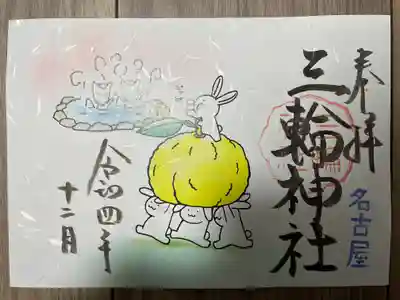 奉拝
三輪神社
名古屋
令和四年
十二月